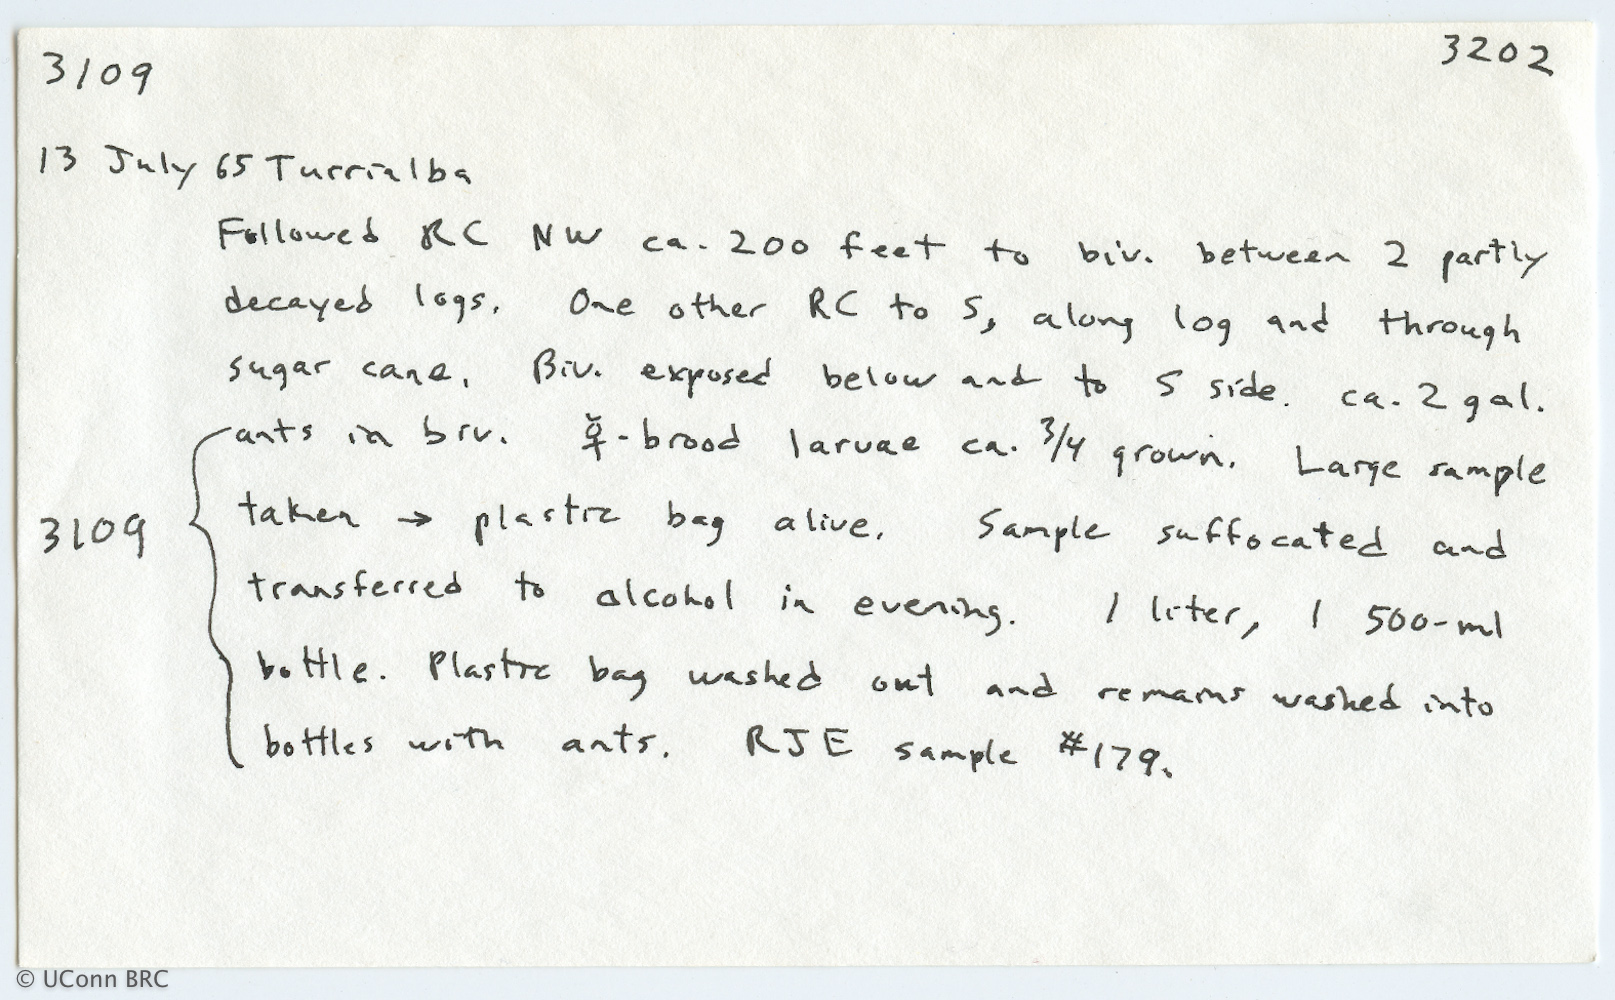 3109 3202
13 July 65 Turrialba
Followed RC NW ca. 200 feet to biv. between 2 partly
decayed logs. One other RC to S, along log and through
sugar cane. Biv. exposed below and to S side. ca. 2 gal.
ants in biv. ☿-brood larvae ca. 3/4 grown. Large sample
3109 taken → plastic bag alive. Sample suffocated and
transferred to alcohol in evening. 1 liter, 1 500-ml
bottle. Plastic bag washed out and remains washed into
bottles with ants. RJE sample #179.
© UConn BRC